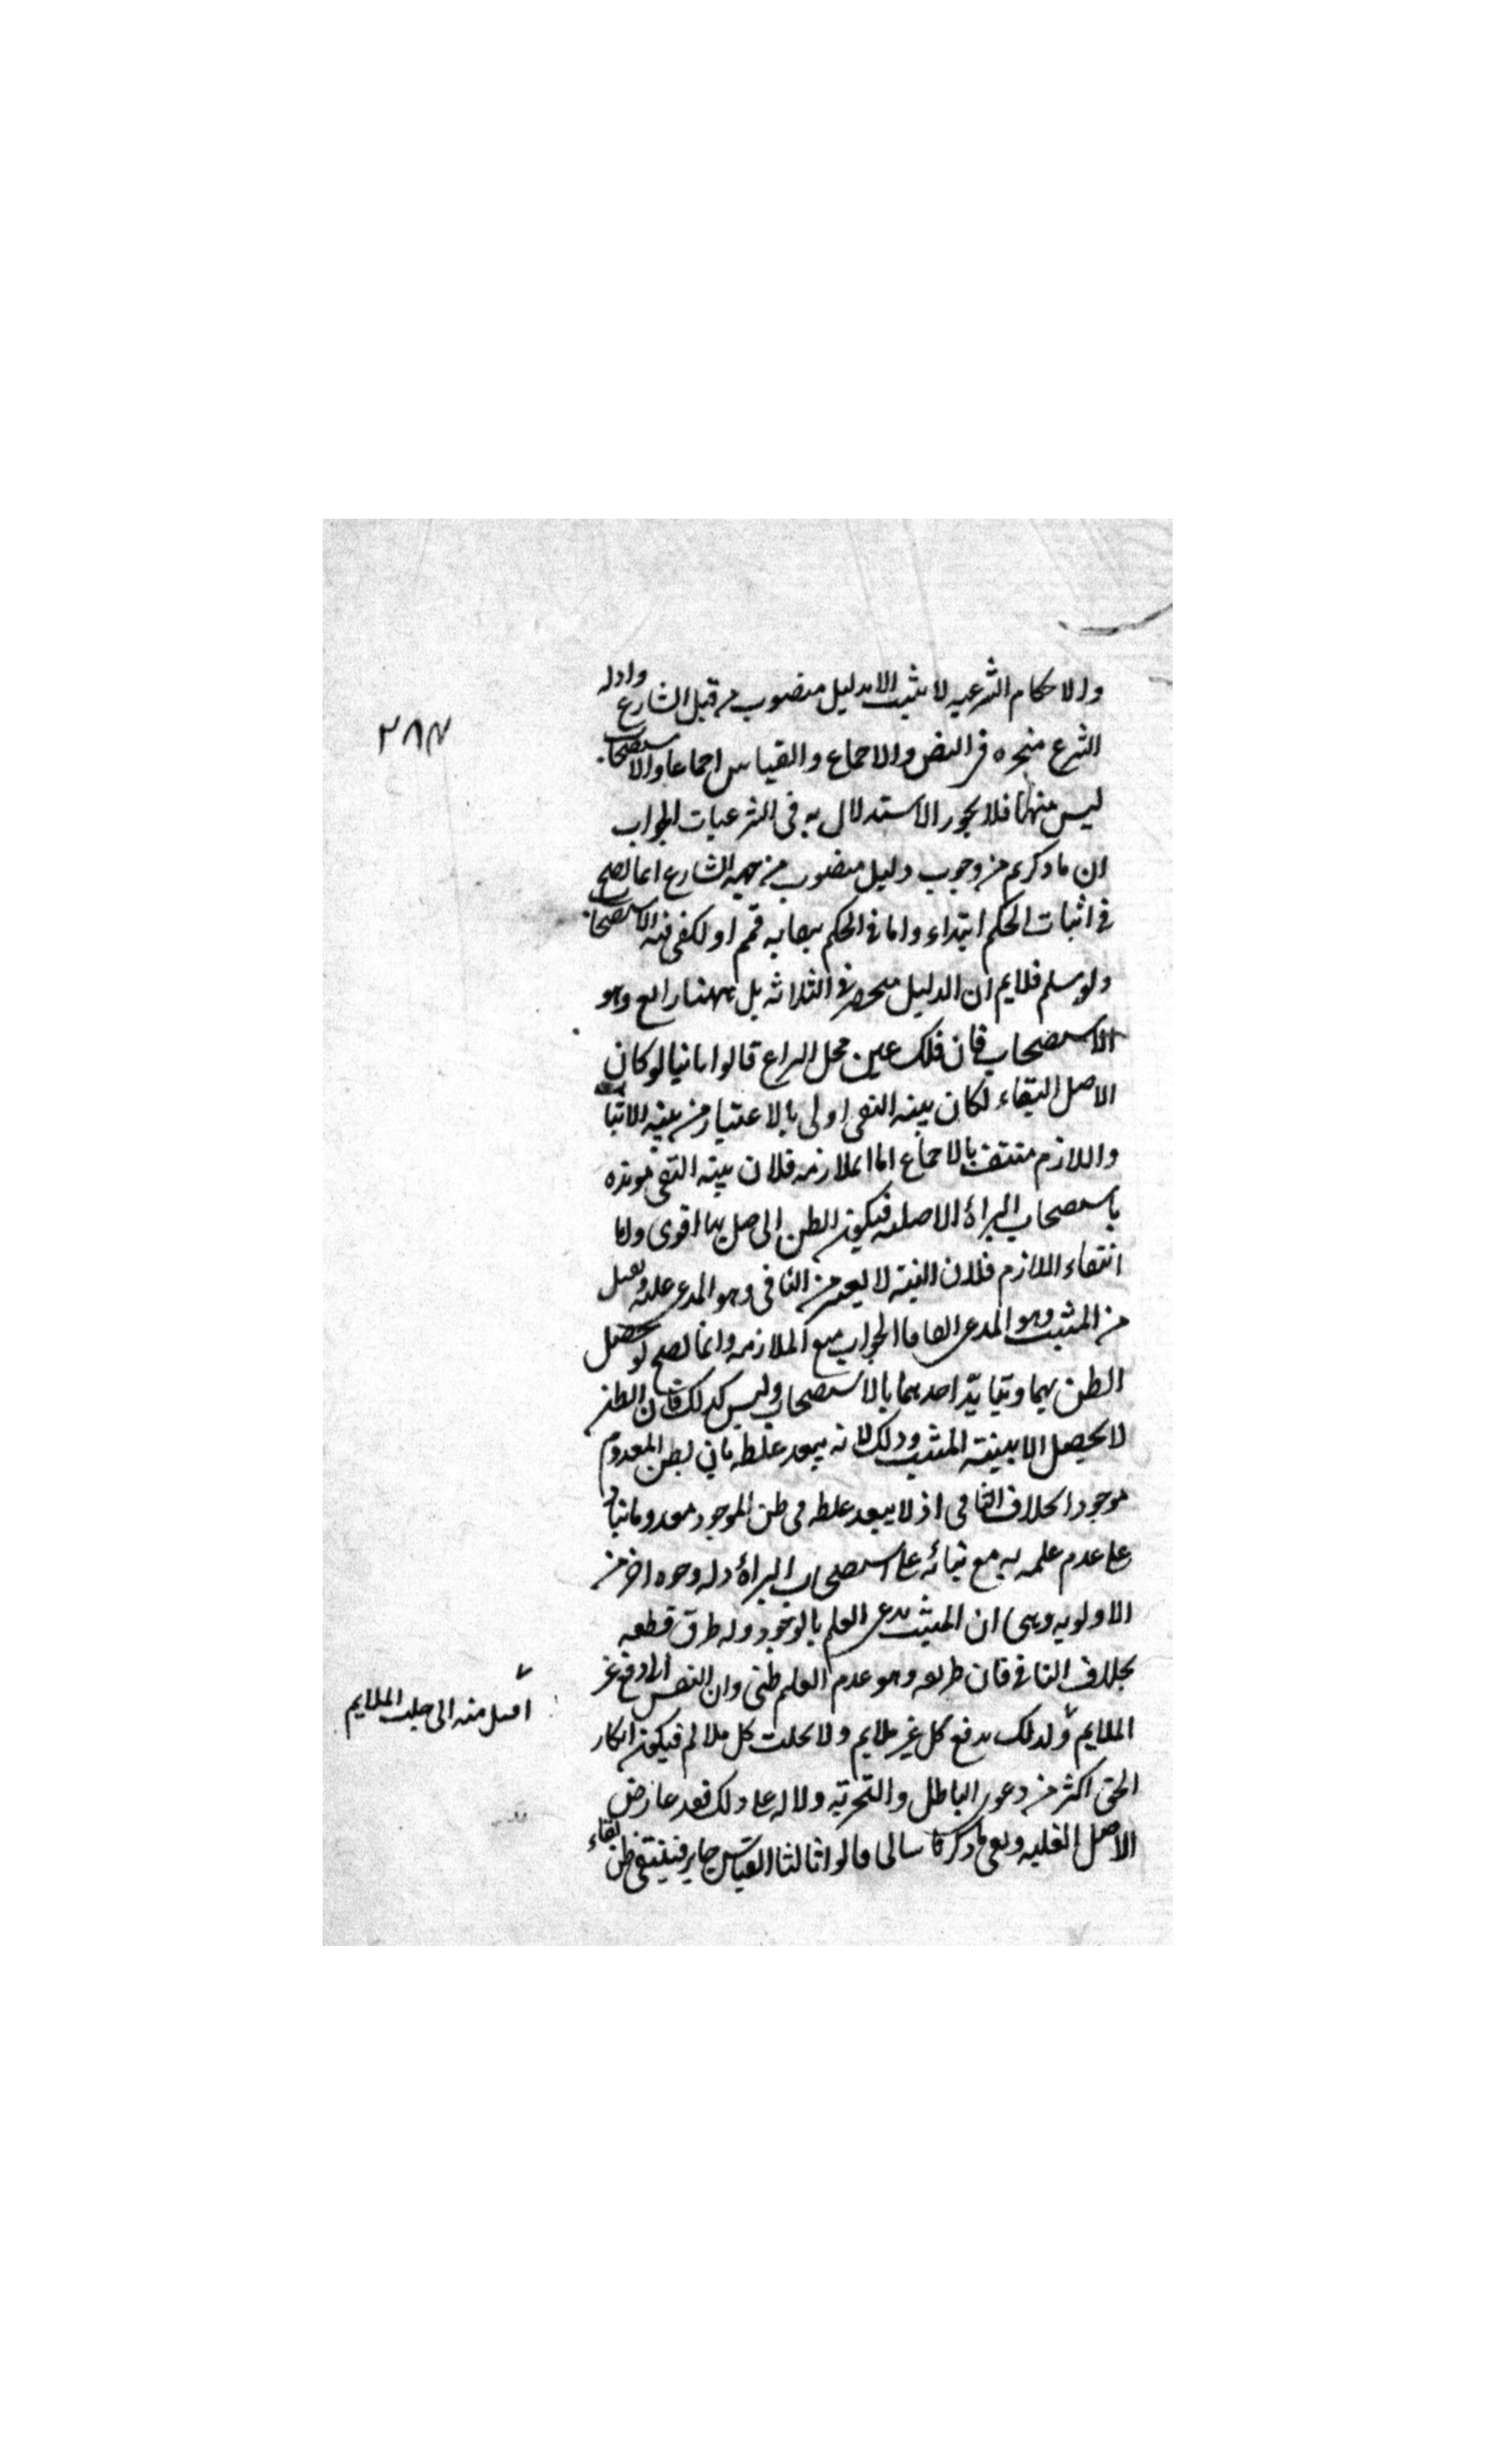 والاحكام الشرعيه لا يثبت الا بدليل منصوب من قبل الشارع وادله
الشرع منحصره في النص والاجماع والقياس اجماعا والاستصحاب
ليس منها فلا يجوز الاستدلال به في الشرعيات الجواب
ان ما ذكرتم من وجوب دليل منصوب من جهه الشارع انما يصح
في اثبات الحكم ابتداء واما في الحكم ببقائه فمم اذ لكفى فيه الاستصحاب
ولو سلم فلا يم ان الدليل منحصر في الثلاثه بل ههنا رابع وهو
الاستصحاب فان ذلك عين محل النزاع قالوا ثانيا لو كان
الاصل البقاء لكان بينه النفي اولى بالاعتبار من بينه الاثبات
واللازم منتف بالاجماع اما الملازمه فلان بينه النفي مويده
باستصحاب البراءة الاصليه فيكون الظن الحاصل بها اقوى واما
انتفاء اللازم فلان البينة لا يعتبر من النافي وهو المدعى عليه ويقبل
من المثبت وهو المدعى الجواب منع الملازمه وانما يصح لو يحصل
الظن بهما وتتأيد احدهما بالاستصحاب وليس كذلك فان الظن
لا يحصل الا ببينة المثبت وذلك لانه يبعد غلطه بان يظن المعدوم
موجودا بخلاف النافي اذ لا يبعد غلطه في ظن الموجود معدوما بناء
على عدم علمه به مع بنائه على استصحاب البراءة وله وجوه اخر من
الاولويه وهي ان المثبت يدعى العلم بالوجود وله طرق قطعيه
بخلاف النافي فان طريقه وهو عدم العلم ظني وان النفس الى دفع غير
الملايم ولذلك يدفع كل غير ملايم ولا يجلب كل ملايم فيكون انكار
الحق اكثر من دعوى الباطل والتجربه دالة على ذلك فقد عارض
الاصل الغلبه وبقي ما ذكرنا سالما قالوا ثالثا القياس جايز فينتفي ظن بقاء
اميل منه الى جلب الملايم